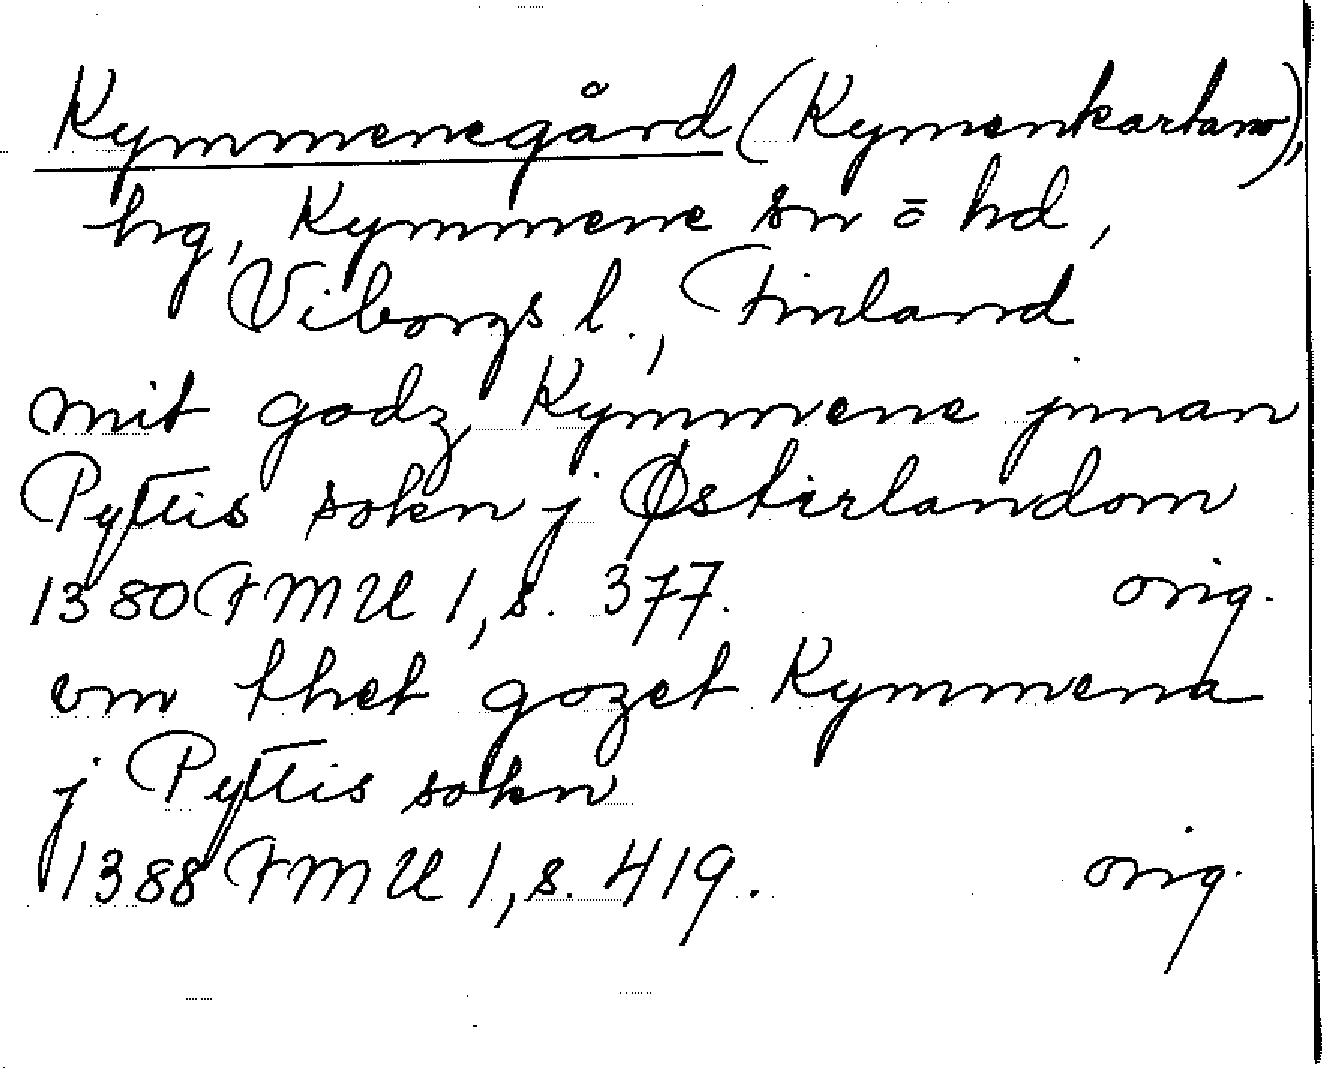 Kymmenegård (Kymenkartano),
hg, Kymmene sn ō hd,
Viborgs l., Finland
mit godz Kymmene jnnan
Pyttis sokn j Østirlandom
1380 FMU 1, s. 377. orig.
vm thet gozet Kymmena
j Pyttis sokn
1388 FMU 1, s. 419. orig.